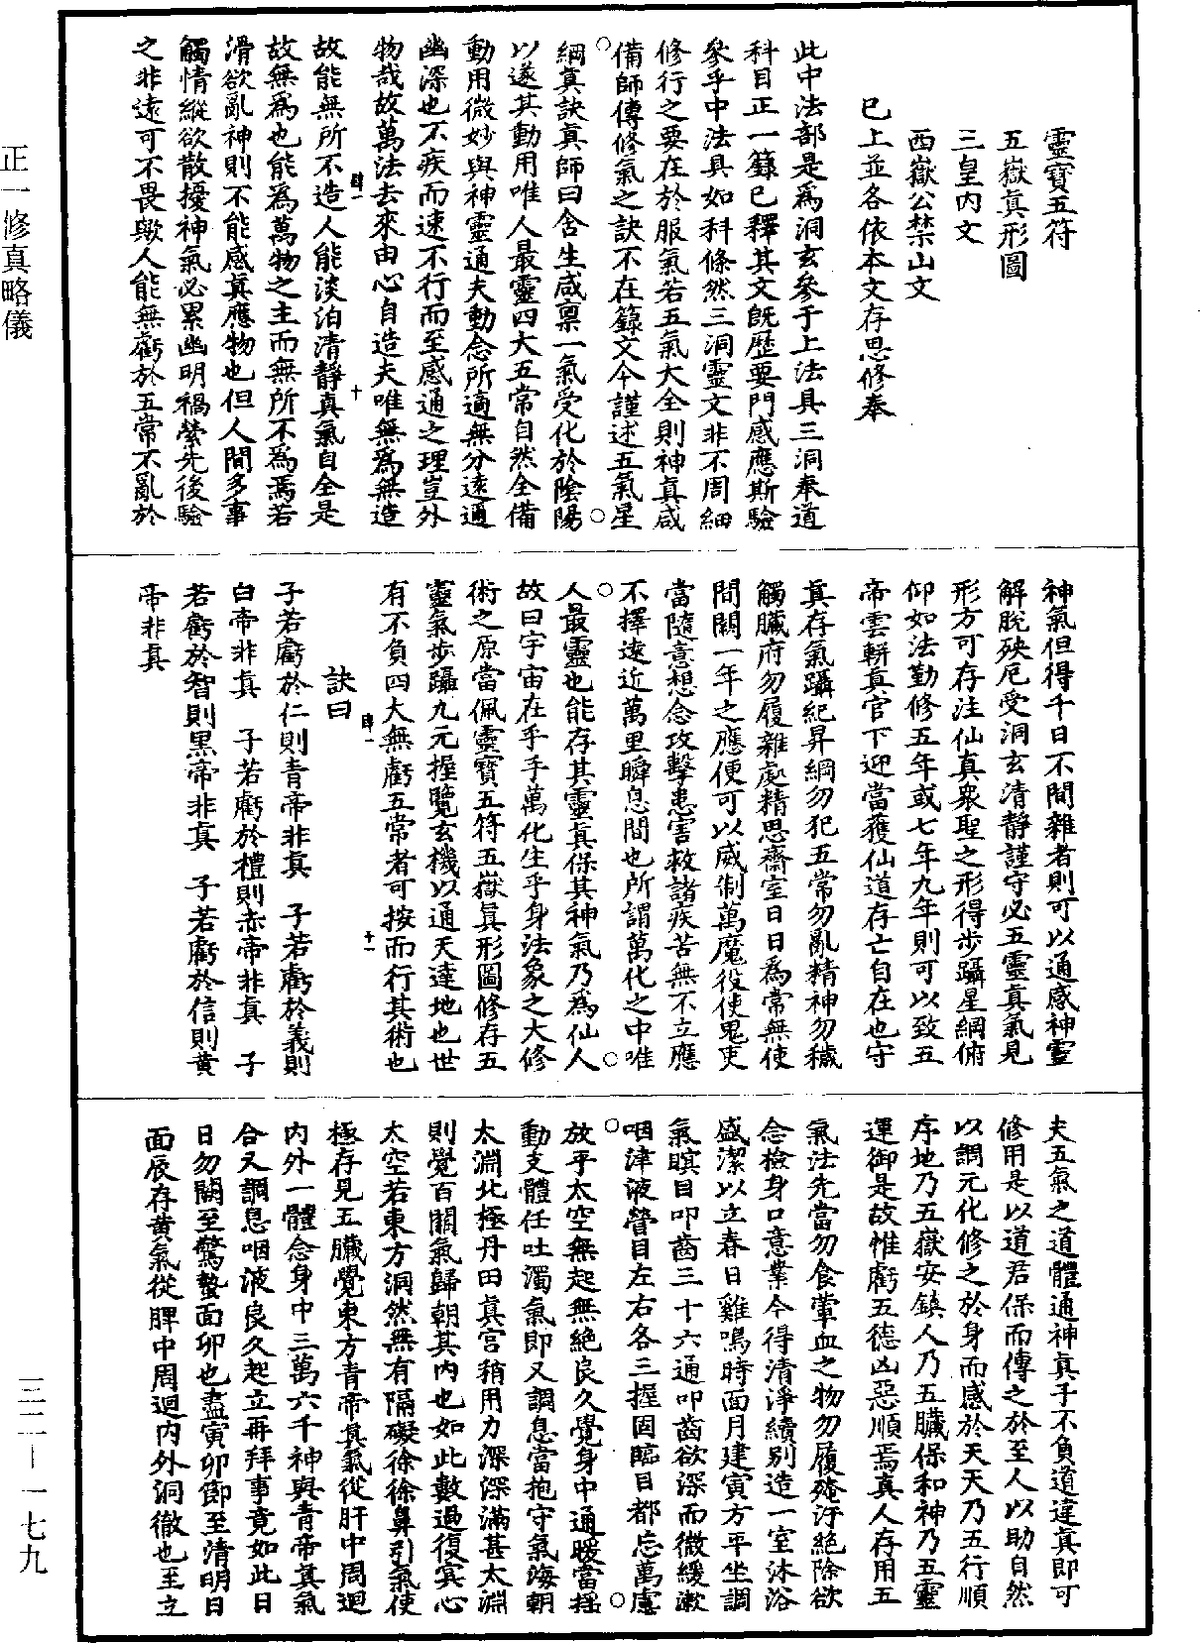 靈寶五符
五嶽真形圖
三皇內文
西嶽公禁山文
已上並各依本文存思修奉
此中法部是為洞玄參于上法具三洞奉道
科目正一籙已釋其文既歷要門感應斯驗
參乎中法具如科條然三洞靈文非不周細
修行之要在於服氣若五氣大全則神真咸
備師傳修氣之訣不在籙文今謹述五氣星
綱真訣真師曰含生咸稟一氣受化於陰陽
以遂其動用唯人最靈四大五常自然全備
動用微妙與神靈通夫動念所適無分遠邇
幽深也不疾而速不行而至感通之理豈外
物哉故萬法去來由心自造夫唯無為無造
故能無所不造人能淡泊清靜真氣自全是
故無為也能為萬物之主而無所不為焉若
滑欲亂神則不能感真應物也但人間多事
觸情縱欲散擾神氣必累幽明禍縈先後驗
之非遠可不畏歟人能無虧於五常不亂於
神氣但得千日不間雜者則可以通感神靈
解脫殃厄受洞玄清靜謹守必五靈真氣見
形方可存注仙真眾聖之形得步躡星綱俯
仰如法勤修五年或七年九年則可以致五
帝雲軿真官下迎當獲仙道存亡自在也守
真存氣躡紀昇綱勿犯五常勿亂精神勿穢
觸臟府勿履雜處精思齋室日日為常無使
間闕一年之應便可以威制萬魔役使鬼吏
當隨意想念攻擊患害救諸疾苦無不立應
不擇遠近萬里瞬息間也所謂萬化之中唯
人最靈也能存其靈真保其神氣乃為仙人
故曰宇宙在乎手萬化生乎身法象之大修
術之原當佩靈寶五符五嶽真形圖修存五
靈氣步躡九元握覽玄機以通天達地也世
有不負四大無虧五常者可按而行其術也
訣曰
子若虧於仁則青帝非真　子若虧於義則
白帝非真　子若虧於禮則赤帝非真　子
若虧於智則黑帝非真　子若虧於信則黃
帝非真
夫五氣之道體通神真子不負道違真即可
修用是以道君保而傳之於至人以助自然
以調元化修之於身而感於天天乃五行順
序地乃五嶽安鎮人乃五臟保和神乃五靈
運御是故惟虧五德凶惡順焉真人存用五
氣法先當勿食葷血之物勿履殗汙絕除欲
念檢身口意業令得清淨續別造一室沐浴
盛潔以立春日雞鳴時面月建寅方平坐調
氣瞑目叩齒三十六通叩齒欲深而微緩漱
咽津液營目左右各三握固臨目都忘萬慮
放乎太空無起無絕良久覺身中通暖當搖
動支體任吐濁氣即又調息當抱守氣海朝
太淵北極丹田真宮稍用力深深滿甚太淵
則覺百關氣歸朝其內也如此數過復冥心
太空若東方洞然無有隔礙徐徐鼻引氣使
極存見五臟覺東方青帝真氣從肝中周迴
內外一體念身中三萬六千神與青帝真氣
合又調息咽液良久起立再拜事竟如此日
日勿闕至驚蟄面卯也盡寅卯節至清明日
面辰存黃氣從脾中周迴內外洞徹也至立
肆一　十
肆一　十一
正一修真略儀
三二—一七九